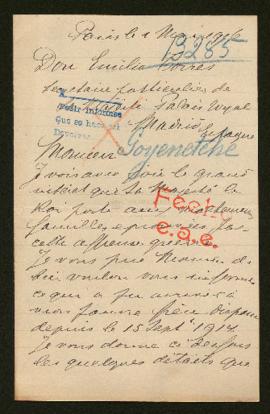 Paris le 1 Mai 1916
13285
Don Emilio
Secretaire particulier de
Palais royal
Pedir informes
Que se hace así
Madrid Espagne
Devolver
Monsieur Goyeneche
Je vous avec le grand
que Sa Majesté le
Roi porte aux
familles par
cette affreuse guerre
Fecho
e.a.e.
Je vous prie Monsieur de
bien vouloir vous informer
ce qui a pu arriver à
mon pauvre frère disparu
depuis le 15 Sept 1914
Je vous donne ci dessous
les quelques détails que